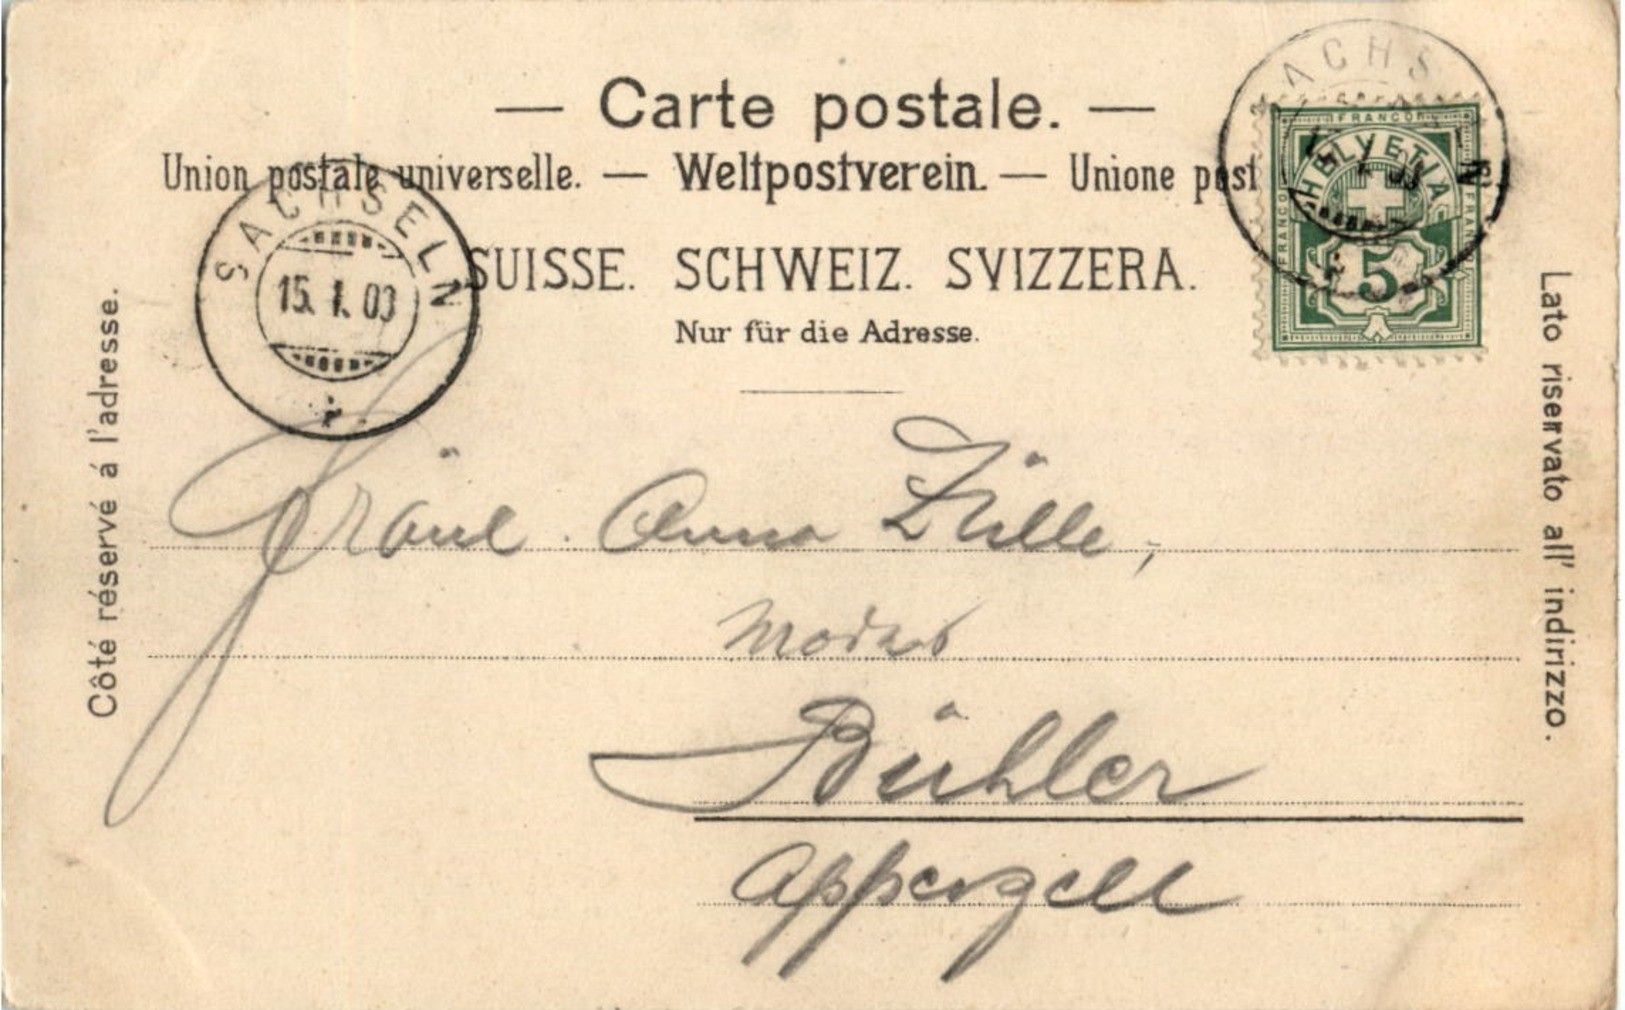 — Carte postale. —
Union postale universelle. — Weltpostverein. — Unione post
SUISSE. SCHWEIZ. SVIZZERA.
Nur für die Adresse.
Côté réservé á l'adresse.
Lato riservato all' indirizzo.
SACHSELN
15. I. 03
ACHS N
FRANCO
FRANCO
FRANCO
HELVETIA
5
Fräul. Anna Zülle,
Modes
Bühler
Appenzell